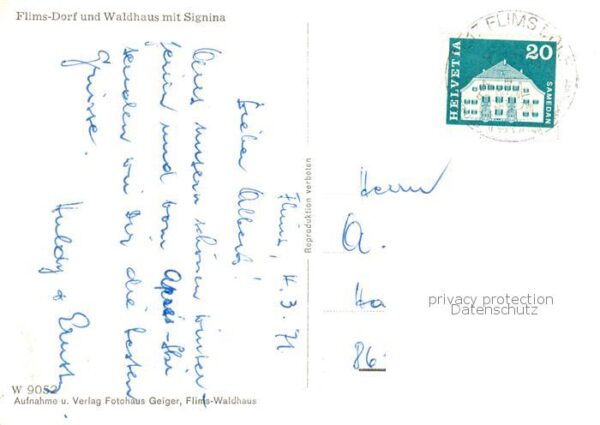 Flims-Dorf und Waldhaus mit Signina
FLIMS
HELVETIA
20
SAMEDAN
Flims, 4.3.71
Lieber Albert!
Aus unsern schönen Winter-
ferien und vom Après-Ski
senden wir Dir die besten
Grüsse.
Huldy & Ernst.
Reproduktion verboten
Herrn
A.
Ha
86
privacy protection
Datenschutz
W 9052
Aufnahme u. Verlag Fotohaus Geiger, Flims-Waldhaus